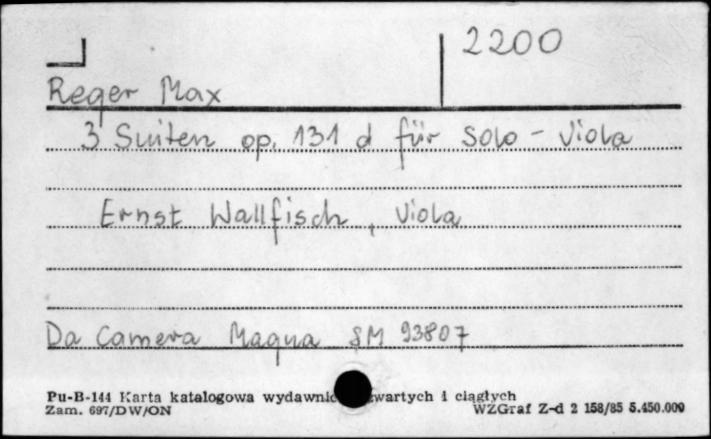 2200
Reger Max
3 Suiten op. 131 d für Solo - Viola
Ernst Wallfisch, Viola
Da Camera Magna SM 93807
Pu-B-144 Karta katalogowa wydawnic wartych i ciągłych
Zam. 697/DW/ON WZGraf Z-d 2 158/85 5.450.000